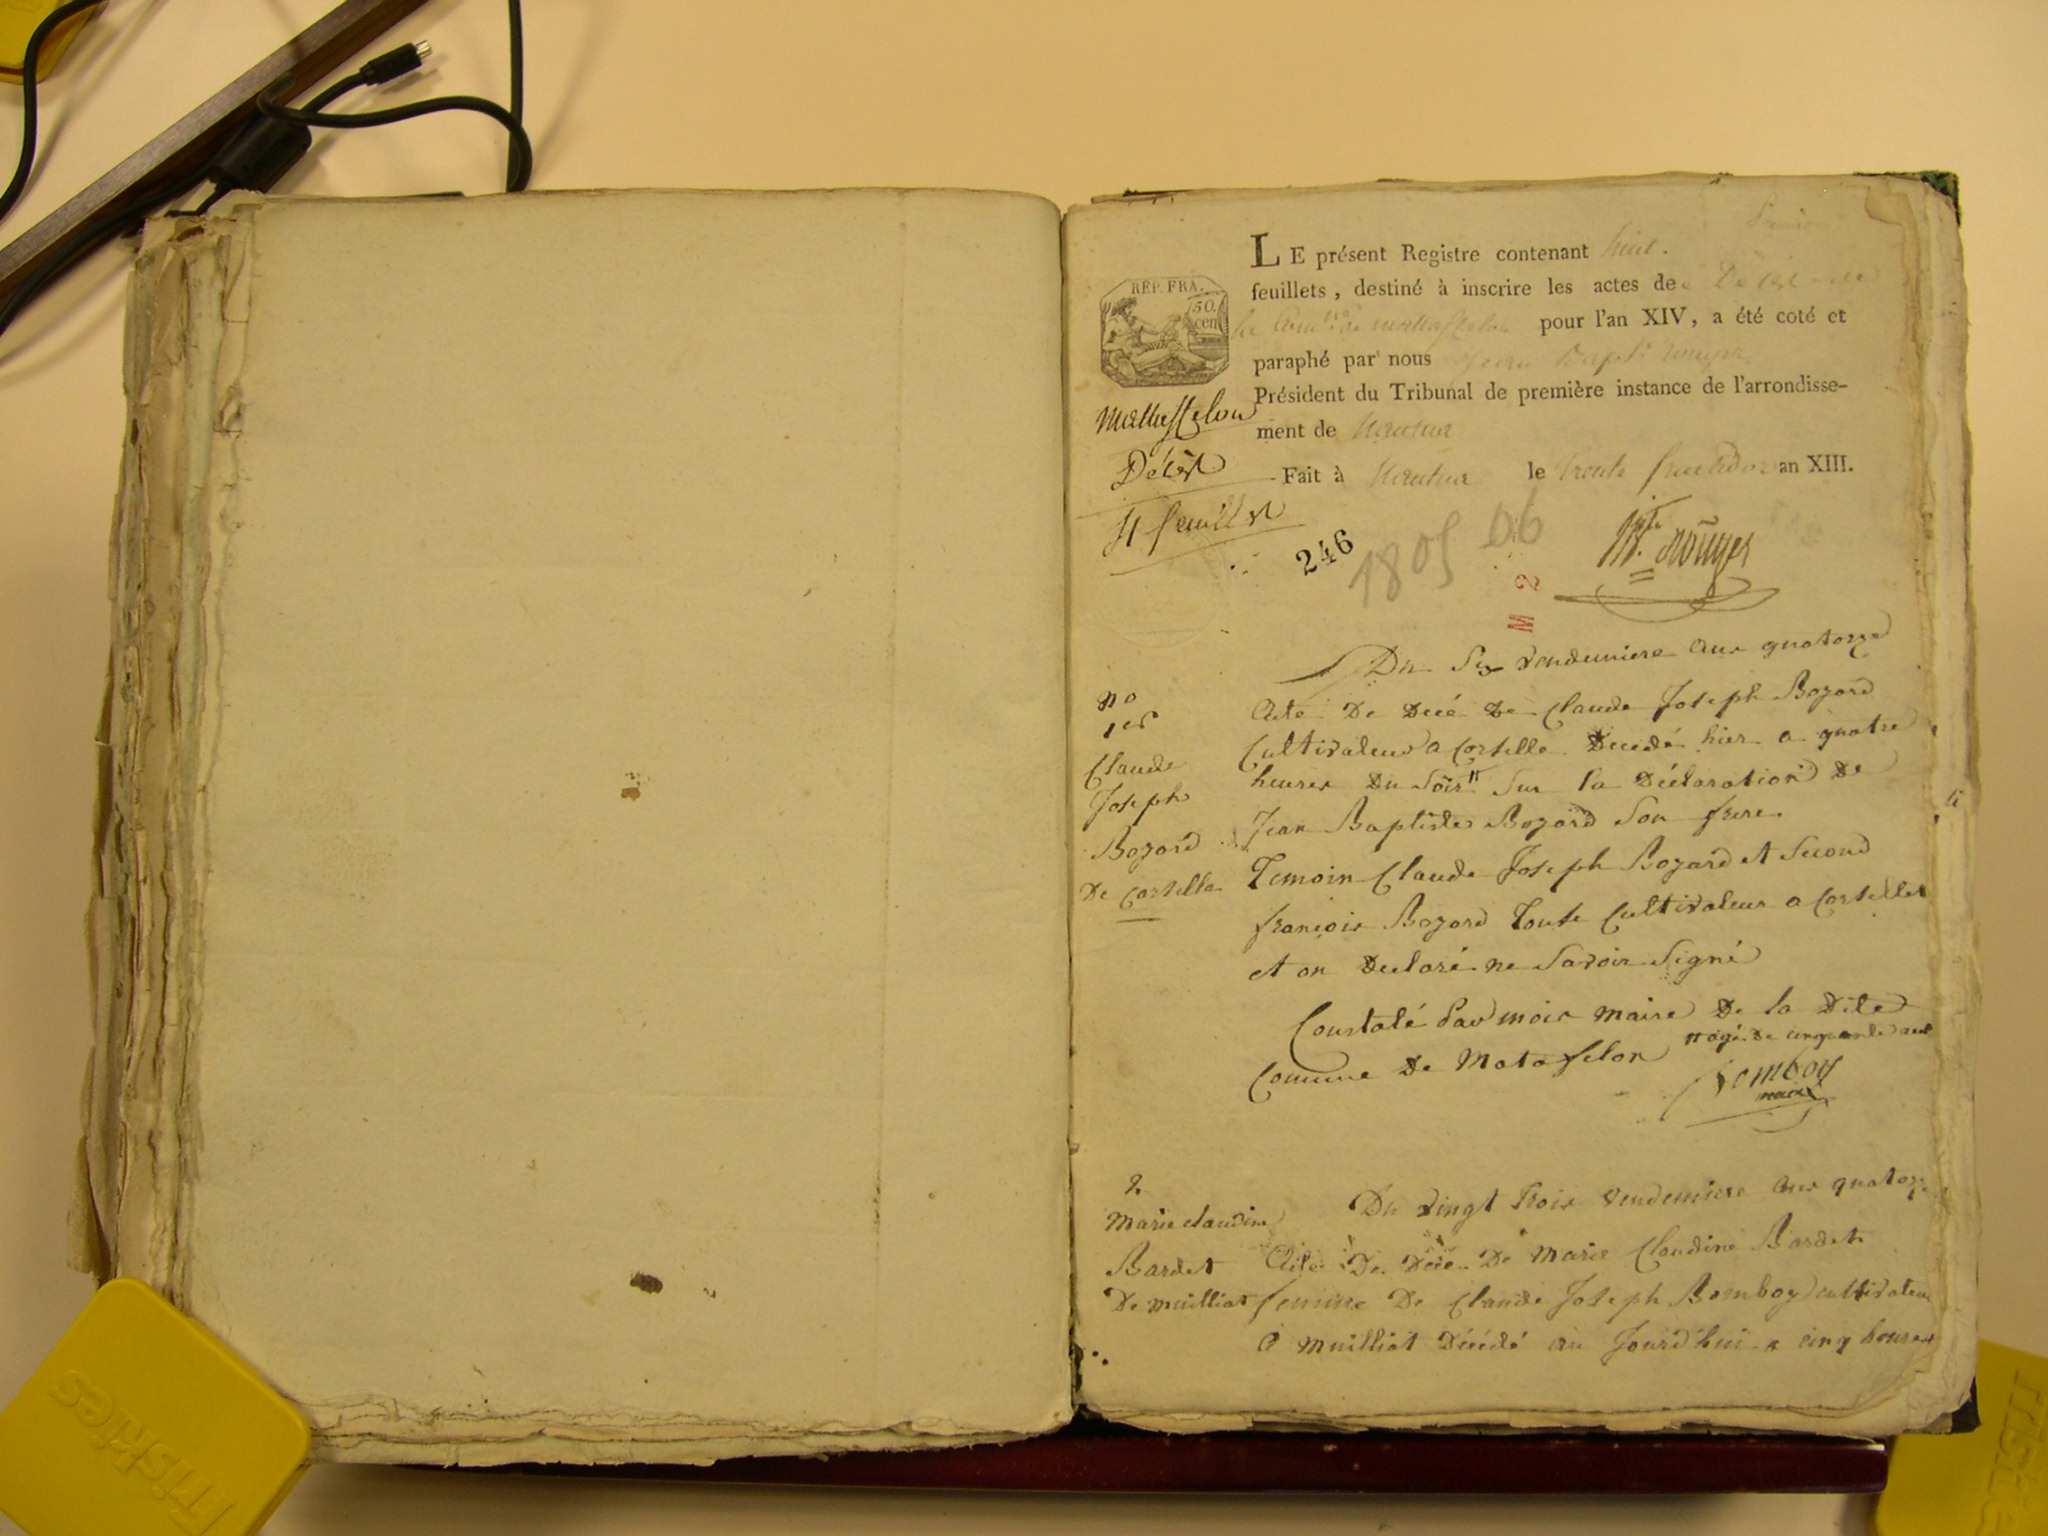 LE présent Registre contenant huit.
feuillets, destiné à inscrire les actes de Décès de
la Comne de mattafelon pour l'an XIV, a été coté et
paraphé par nous Jean Bapte Rouyer
Président du Tribunal de première instance de l'arrondisse-
ment de Nantua
Fait à Nantua le trente fructidor an XIII.
REP. FRA.
50
cen
Mattafelon
Décès
feuillet
246
1805 06
M 2
Rouyer
Du Six vendemiere ans quatorze
no
1er
Claude
Joseph
Bozard
De Corcelle
Acte De Décé De Claude Joseph Bozard
Cultivateur a Corcelle Décédé hier a quatre
heures Du Soir Sur la Déclaration De
Jean Baptiste Bozard Son frere
Temoin Claude Joseph Bozard et Second
françois Bozard Touts Cultivateur a Corcelles
et on Declaré ne Savoir Signé
Constaté Par mois maire De la Dite
Comune De Matafelon
agé De cinquante ans
Bomboy
maire
2
Marie claudine
Bardet
De muilliat
Du vingt trois vendemiere ans quatorze
Acte De Décé De Marie Claudine Bardet
femme De Claude Joseph Bomboy cultivateur
a muilliat Décédé au Jourd'hui a cinq heures
Friskies
Friskies